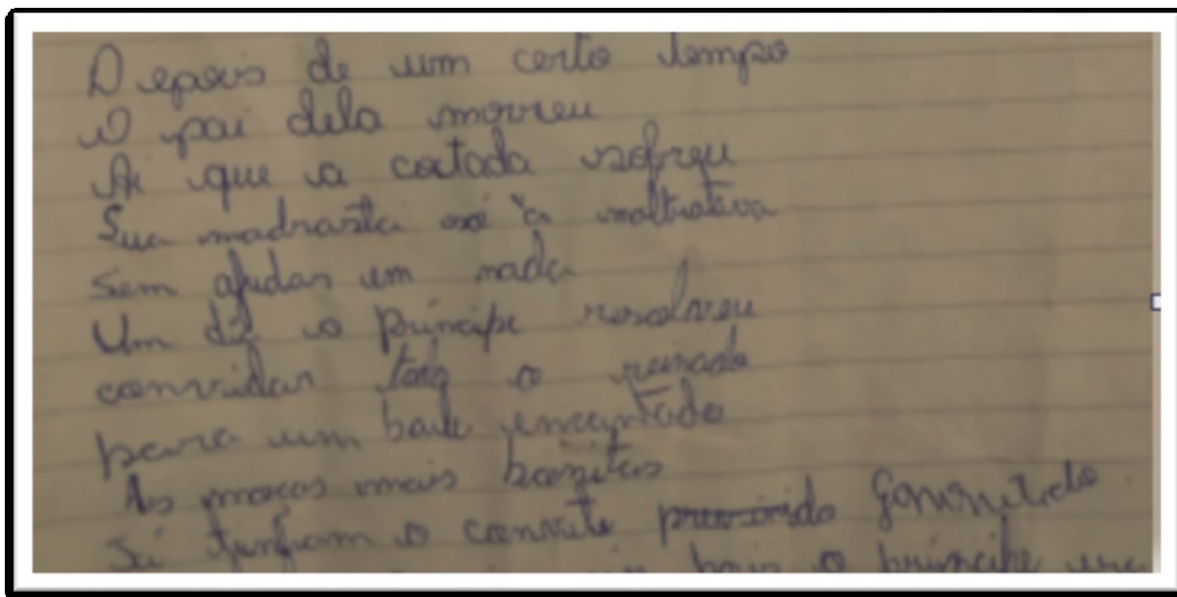 Depois de um certo tempo
O pai dela morreu
Ai que a coitada sofreu
Sua madrasta só a maltratava
Sem ajudar em nada
Um dia o príncipe resolveu
convidar todo o reinado
para um baile encantado
As moças mais bonitas
Já tinham o convite
o príncipe